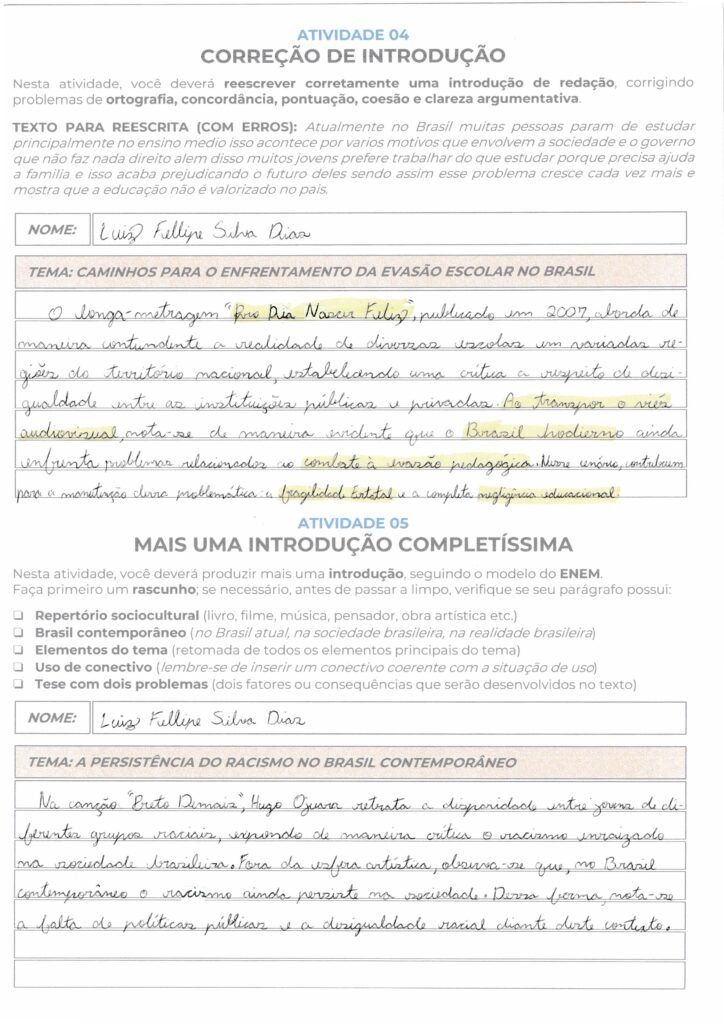 ATIVIDADE 04
CORREÇÃO DE INTRODUÇÃO
Nesta atividade, você deverá reescrever corretamente uma introdução de redação, corrigindo
problemas de ortografia, concordância, pontuação, coesão e clareza argumentativa.
TEXTO PARA REESCRITA (COM ERROS): Atualmente no Brasil muitas pessoas param de estudar
principalmente no ensino medio isso acontece por varios motivos que envolvem a sociedade e o governo
que não faz nada direito alem disso muitos jovens prefere trabalhar do que estudar porque precisa ajuda
a familia e isso acaba prejudicando o futuro deles sendo assim esse problema cresce cada vez mais e
mostra que a educação não é valorizado no pais.
NOME: Luiz Fellipe Silva Dias
TEMA: CAMINHOS PARA O ENFRENTAMENTO DA EVASÃO ESCOLAR NO BRASIL
O longa-metragem "Pro Dia Nascer Feliz", publicado em 2007, aborda de
maneira contundente a realidade de diversas escolas em variadas re-
giões do território nacional, estabelecendo uma crítica a respeito de desi-
gualdade entre as instituições públicas e privadas. Ao transpor o viés
audiovisual, nota-se de maneira evidente que o Brasil hodierno ainda
enfrenta problemas relacionados ao combate à evasão pedagógica. Nesse cenário, contribuem
para a manutenção dessa problemática: a fragilidade Estatal e a completa negligência educacional.
ATIVIDADE 05
MAIS UMA INTRODUÇÃO COMPLETÍSSIMA
Nesta atividade, você deverá produzir mais uma introdução, seguindo o modelo do ENEM.
Faça primeiro um rascunho; se necessário, antes de passar a limpo, verifique se seu parágrafo possui:
❑ Repertório sociocultural (livro, filme, música, pensador, obra artística etc.)
❑ Brasil contemporâneo (no Brasil atual, na sociedade brasileira, na realidade brasileira)
❑ Elementos do tema (retomada de todos os elementos principais do tema)
❑ Uso de conectivo (lembre-se de inserir um conectivo coerente com a situação de uso)
❑ Tese com dois problemas (dois fatores ou consequências que serão desenvolvidos no texto)
NOME: Luiz Fellipe Silva Dias
TEMA: A PERSISTÊNCIA DO RACISMO NO BRASIL CONTEMPORÂNEO
Na canção "Preto Demais", Hugo Ojuara retrata a disparidade entre jovens de di-
ferentes grupos raciais, expondo de maneira crítica o racismo enraizado
na sociedade brasileira. Fora da esfera artística, observa-se que, no Brasil
contemporâneo o racismo ainda persiste na sociedade. Dessa forma, nota-se
a falta de políticas públicas e a desigualdade racial diante deste contexto.